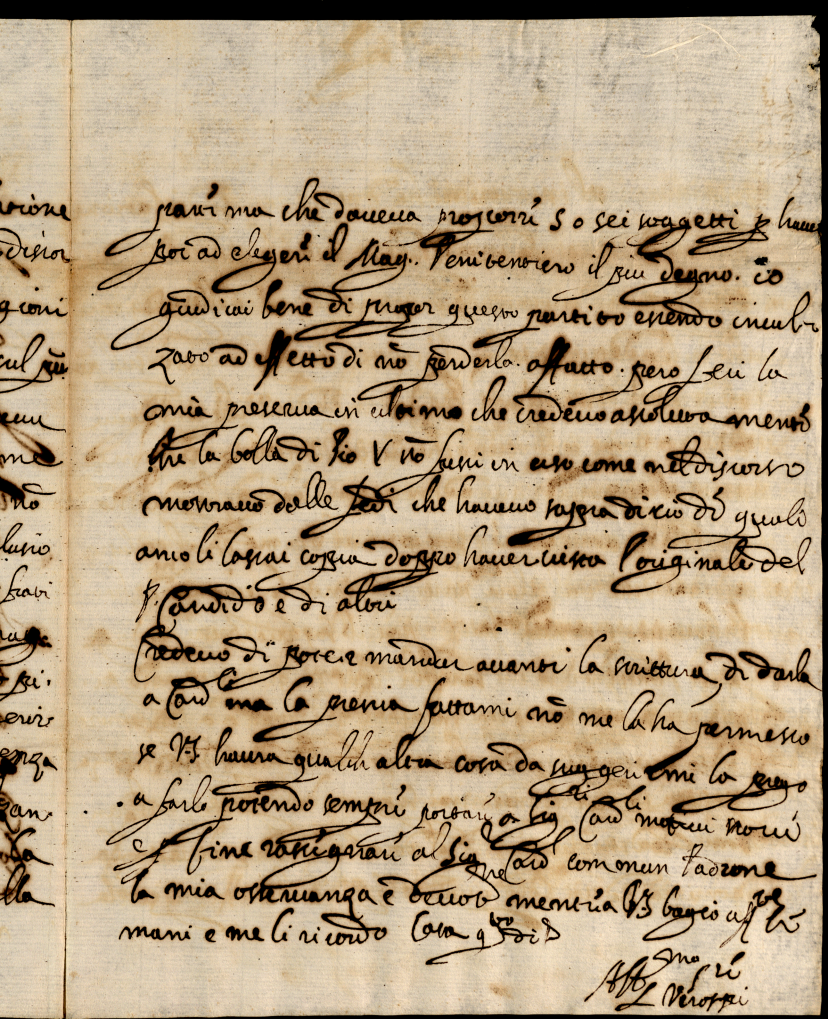 ma che doveva proporre 5 o sei soggetti p haver
poi ad elegere il Mag. Penitentiero il più degno. io
giudicai bene di questo partito essendo incal
zato ad effetto di nõ perderla affatto. pero feci la
mia in ultimo che credevo assolutamente
che la bolla di Pio V nõ fussi in uso come nel discorso
mostravo delle fedi che havevo sopra di ciò de quali
anco li lassai coppia doppo haver vista l'originale del
P. Candido e di altri
Credevo di poter mandar avanti la scrittura, di darla
a Card li ma la fattami nõ me la ha permesso
se VS haura qualch altra cosa da suggerirmi la prego
a farlo potendo sempre portare a Sig ri Card li
e fine rassignare al Sig Card comun Padrone
la mia osservanza e mentre a VS bagio aff te le
mani e me li ricordo Casa q to di 8
Aff mo
Verospi